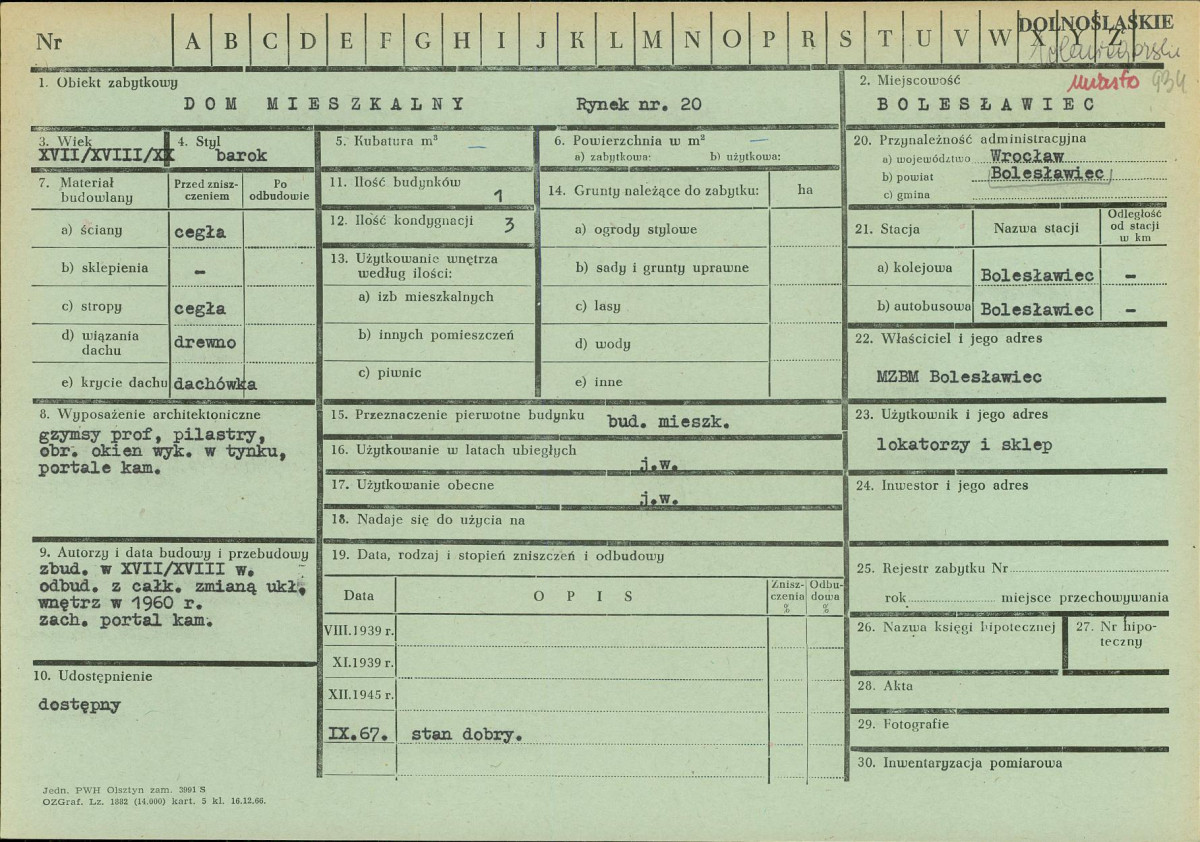 Nr A B C D E F G H I J K L M N O P R S T U V W X Y Z
DOLNOŚLĄSKIE
miasto 934
1. Obiekt zabytkowy
DOM MIESZKALNY Rynek nr. 20
2. Miejscowość
BOLESŁAWIEC
3. Wiek
XVII/XVIII/XX
4. Styl
barok
5. Kubatura m³ —
6. Powierzchnia w m² —
a) zabytkowa: b) użytkowa:
7. Materiał budowlany
Przed zniszczeniem
Po odbudowie
a) ściany cegła
b) sklepienia -
c) stropy cegła
d) wiązania dachu drewno
e) krycie dachu dachówka
8. Wyposażenie architektoniczne
gzymsy prof, pilastry,
obr. okien wyk. w tynku,
portale kam.
9. Autorzy i data budowy i przebudowy
zbud. w XVII/XVIII w.
odbud. z całk. zmianą ukł,
wnętrz w 1960 r.
zach. portal kam.
10. Udostępnienie
dostępny
11. Ilość budynków 1
12. Ilość kondygnacji 3
13. Użytkowanie wnętrza
według ilości:
a) izb mieszkalnych
b) innych pomieszczeń
c) piwnic
14. Grunty należące do zabytku: ha
a) ogrody stylowe
b) sady i grunty uprawne
c) lasy
d) wody
e) inne
15. Przeznaczenie pierwotne budynku bud. mieszk.
16. Użytkowanie w latach ubiegłych j.w.
17. Użytkowanie obecne j.w.
18. Nadaje się do użycia na
19. Data, rodzaj i stopień zniszczeń i odbudowy
Data OPIS Zniszczenia % Odbudowa %
VIII.1939 r.
XI.1939 r.
XII.1945 r.
IX.67. stan dobry.
20. Przynależność administracyjna
a) województwo Wrocław
b) powiat Bolesławiec
c) gmina
21. Stacja Nazwa stacji Odległość od stacji w km
a) kolejowa Bolesławiec -
b) autobusowa Bolesławiec -
22. Właściciel i jego adres
MZBM Bolesławiec
23. Użytkownik i jego adres
lokatorzy i sklep
24. Inwestor i jego adres
25. Rejestr zabytku Nr
rok miejsce przechowywania
26. Nazwa księgi hipotecznej
27. Nr hipoteczny
28. Akta
29. Fotografie
30. Inwentaryzacja pomiarowa
Jedn. PWH Olsztyn zam. 3991 S
OZGraf. Lz. 1882 (14.000) kart. 5 kl. 16.12.66.